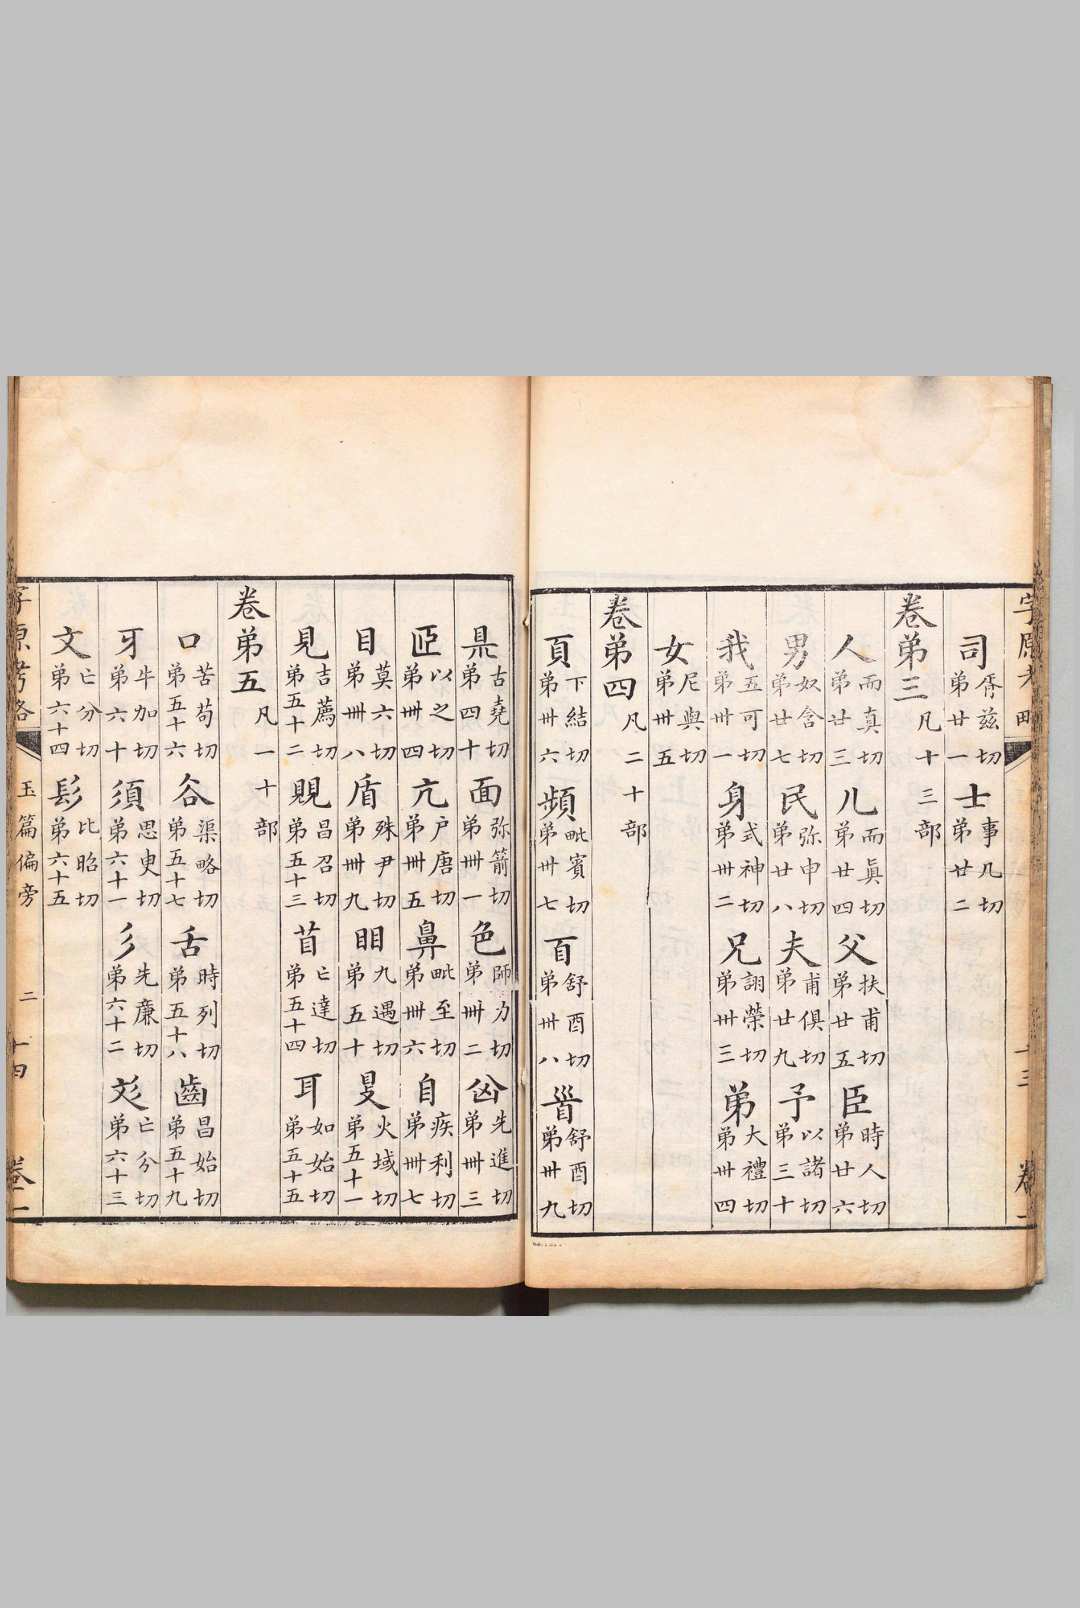 司胥兹切弟廿一 士事几切弟廿二
卷弟三凡十三部
人而真切弟廿三 儿而眞切弟廿四 父扶甫切弟廿五 臣時人切弟廿六
男奴含切弟廿七 民弥申切弟廿八 夫甫俱切弟廿九 予以諸切弟三十
我五可切弟卅一 身式神切弟卅二 兄詡榮切弟卅三 弟大禮切弟卅四
女尼與切弟卅五
卷弟四凡二十部
頁下結切弟卅六 頻毗賓切弟卅七 𦣻舒酉切弟卅八 𩠐舒酉切弟卅九
県古堯切弟四十 面弥箭切弟卌一 色師力切弟卌二 囟先進切弟卌三
𦣞以之切弟卌四 亢户唐切弟卌五 鼻毗至切弟卌六 自疾利切弟卌七
目莫六切弟卌八 盾殊尹切弟卌九 䀠九遇切弟五十 𥄎火域切弟五十一
見吉薦切弟五十二 覞昌召切弟五十三 苜亡達切弟五十四 耳如始切弟五十五
卷弟五凡一十部
口苦苟切弟五十六 谷渠略切弟五十七 舌時列切弟五十八 齒昌始切弟五十九
牙牛加切弟六十 須思臾切弟六十一 彡先廉切弟六十二 彣亡分切弟六十三
文亡分切弟六十四 髟比昭切弟六十五
字原考略 玉篇偏旁 二 十四 卷二